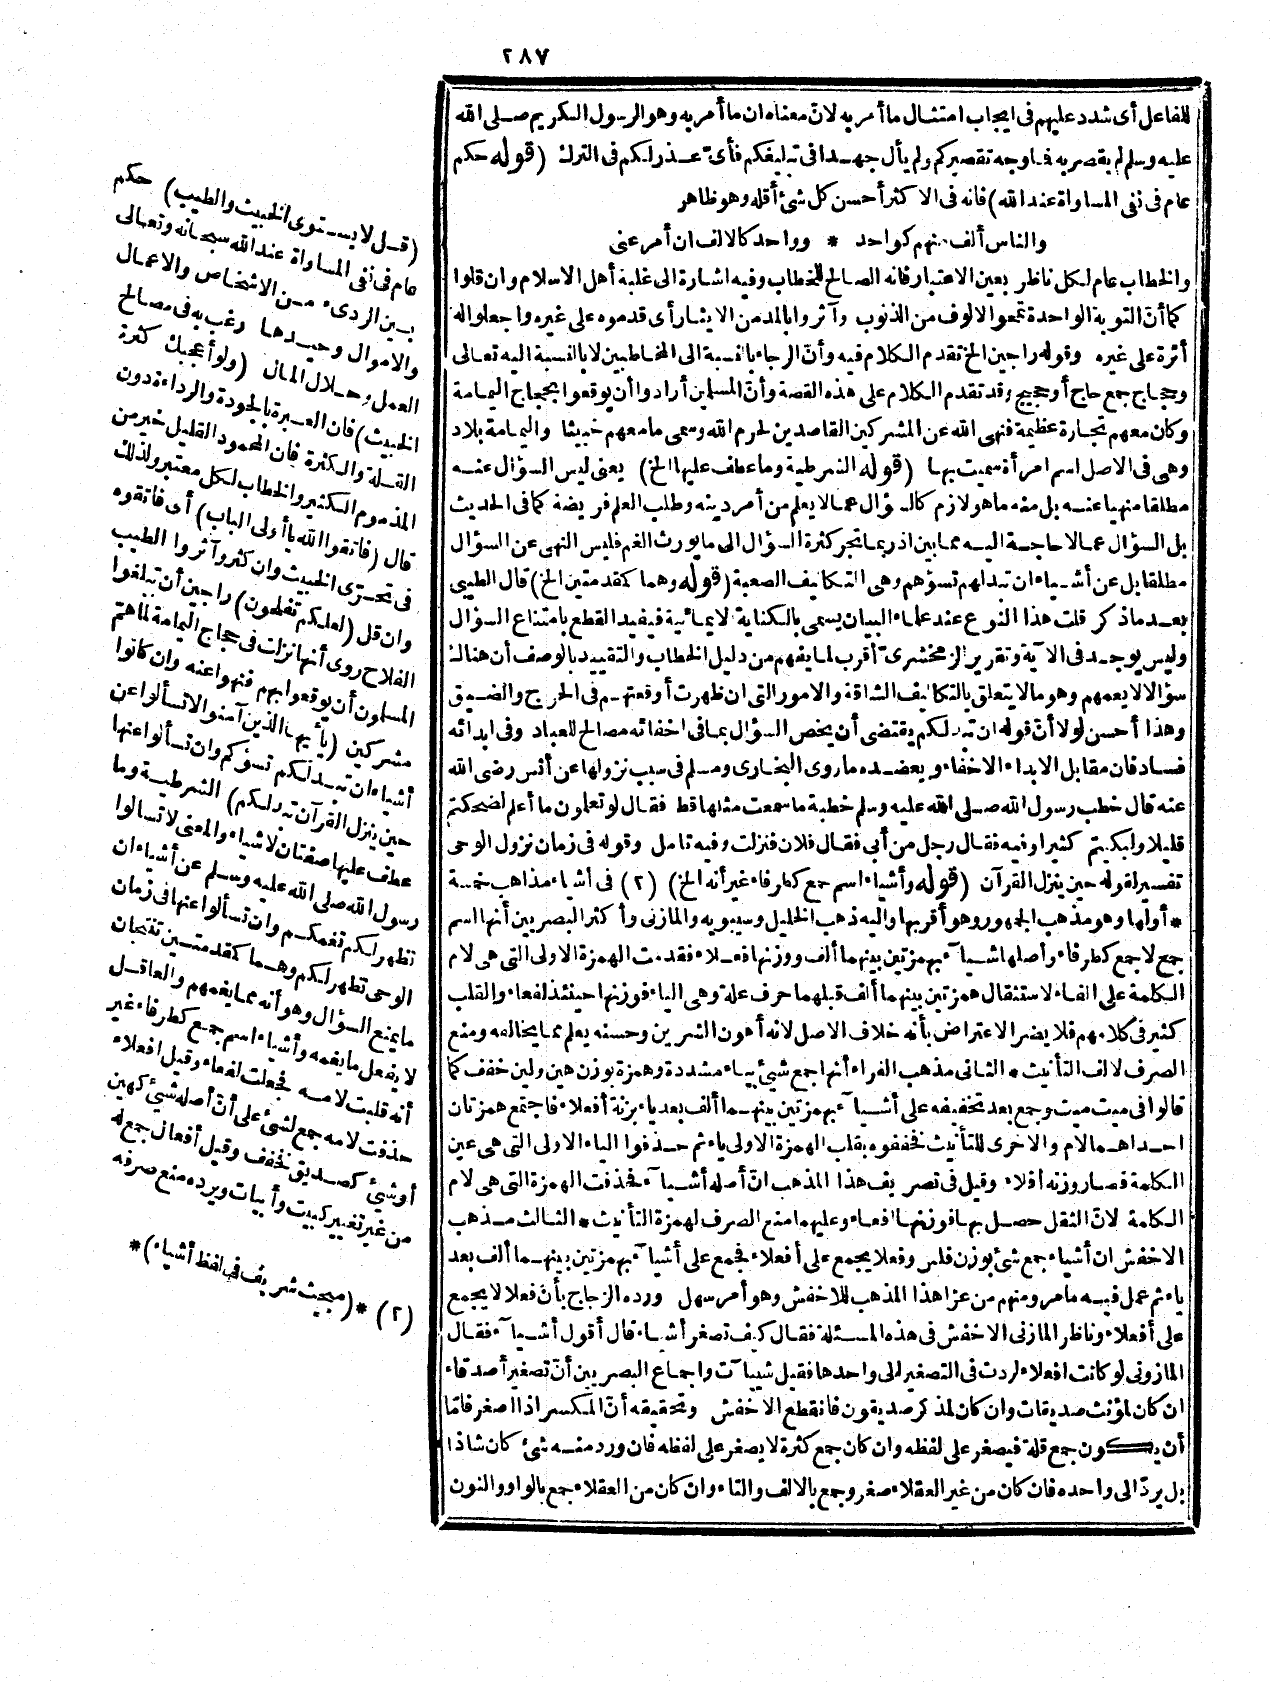 ٢٨٧
للفاعل أى شدد عليهم فى ايجاب امتثال ما أمر به لانّ معناه ان ما أمر به وهو الرسول الكريم صلى الله
عليه وسلم لم يقصر به فما وجه تقصيركم ولم يأل جهدا فى تبليغكم فأىّ عذر لكم فى الترك (قوله حكم
عام فى نفى المساواة عند الله) فانه فى الاكثر أحسن كل شئ أقله وهو ظاهر
والناس ألف منهم كواحد * وواحد كالالف ان أمر عنى
والخطاب عام لكل ناظر بعين الاعتبار فانه الصالح للخطاب وفيه اشارة الى غلبة أهل الاسلام وان قلوا
كما أنّ التوبة الواحدة تمحو الالوف من الذنوب وآثروا بالمد من الايثار أى قدموه على غيره واجعلوا له
أثرة على غيره وقوله راجين الخ تقدم الكلام فيه وأنّ الرجاء بالنسبة الى المخاطبين لا بالنسبة اليه تعالى
وحجاج جمع حاج أو حجيج وقد تقدم الكلام على هذه القصة وأنّ المسلمين أرادوا أن يوقعوا بحجاج اليمامة
وكان معهم تجارة عظيمة فنهى الله عن المشركين القاصدين لحرم الله وسمى ما معهم خبيثا واليمامة بلاد
وهى فى الاصل اسم امرأة سميت بها (قوله الشرطية وما عطف عليها الخ) يعنى ليس السؤال عنه
مطلقا منهيا عنه بل منه ما هو لازم كالسؤال عما لا يعلم من أمر دينه وطلب العلم فريضة كما فى الحديث
بل السؤال عما لا حاجة اليه مما بين اذ ربما تجر كثرة السؤال الى ما يورث الغم فليس النهى عن السؤال
مطلقا بل عن أشياء ان تبدلهم تسؤهم وهى التكاليف الصعبة (قوله وهما كمقدمتين الخ) قال الطيبى
بعد ما ذكر قلت هذا النوع عند علماء البيان يسمى بالكناية الايمائية فيفيد القطع بامتناع السؤال
وليس يوجد فى الآية وتقرير الزمخشرىّ أقرب لما يفهم من دليل الخطاب والتقييد بالوصف أن هناك
سؤالا لا يعمهم وهو ما لا يتعلق بالتكاليف الشاقة والامور التى ان ظهرت أوقعتهم فى الحرج والضيق
وهذا أحسن لولا أنّ قوله ان تبدلكم يقتضى أن يخص السؤال بما فى اخفائه مصالح للعباد وفى ابدائه
فساد فان مقابل الابداء الاخفاء ويعضده ما روى البخارى ومسلم فى سبب نزولها عن أنس رضى الله
عنه قال خطب رسول الله صلى الله عليه وسلم خطبة ما سمعت مثلها قط فقال لو تعلمون ما أعلم لضحكتم
قليلا ولبكيتم كثيرا وفيه فقال رجل من أبى فقال فلان فنزلت وفيه تامل وقوله فى زمان نزول الوحى
تفسير لقوله حين ينزل القرآن (قوله وأشياء اسم جمع كطرفاء غير أنه الخ) (٢) فى أشياء مذاهب خمسة
* أولها وهو مذهب الجمهور وهو أقربها واليه ذهب الخليل وسيبويه والمازنى وأكثر البصريين أنها اسم
جمع لا جمع كطرفاء وأصلها شيآء بهمزتين بينهما ألف ووزنها فعلاء فقدمت الهمزة الاولى التى هى لام
الكلمة على الفاء لاستثقال همزتين بينهما ألف قبلهما حرف علة وهى الياء فوزنها حينئذ لفعاء والقلب
كثير فى كلامهم فلا يضر الاعتراض بأنه خلاف الاصل لانه أهون الشرين وحسنه يعلم مما يخالفه ومنع
الصرف لالف التأنيث * الثانى مذهب الفراء أنها جمع شيئ بياء مشددة وهمزة بوزن هين ولين خفف كما
قالوا فى ميت ميت وجمع بعد تخفيفه على أشيآء بهمزتين بينهما ألف بعد ياء بزنة أفعلاء فاجتمع همزتان
احداهما لام والاخرى للتأنيث فخففوه بقلب الهمزة الاولى ياء ثم حذفوا الياء الاولى التى هى عين
الكلمة فصار وزنه أفلاء وقيل فى تصريف هذا المذهب انّ أصله أشيآء فحذفت الهمزة التى هى لام
الكلمة لانّ الثقل حصل بها فوزنها افعاء وعليهما منع الصرف لهمزة التأنيث * الثالث مذهب
الاخفش ان أشياء جمع شئ بوزن فلس وفعلا يجمع على أفعلاء فجمع على أشيآء بهمزتين بينهما ألف بعد
ياء ثم عمل فيه ما مر ومنهم من عزا هذا المذهب للاخفش وهو أمر سهل ورده الزجاج بأنّ فعلا لا يجمع
على أفعلاء وناظر المازنى الاخفش فى هذه المسئلة فقال كيف تصغر أشياء قال أقول أشيآء فقال
المازونى لو كانت افعلاء لردت فى التصغير الى واحدها فقيل شييآت واجماع البصريين أنّ تصغير أصدقاء
ان كان لمؤنث صديقات وان كان لمذكر صديقون فانقطع الاخفش وتحقيقه أنّ المكسر اذا صغر فامّا
أن يكون جمع قلة فيصغر على لفظه وان كان جمع كثرة لا يصغر على لفظه فان ورد منه شئ كان شاذا
بل يردّ الى واحده فان كان من غير العقلاء صغر وجمع بالالف والتاء وان كان من العقلاء جمع بالواو والنون
(قل لا يستوى الخبيث والطيب) حكم
عام فى نفى المساواة عند الله سبحانه وتعالى
بين الردىء من الاشخاص والاعمال
والاموال وجيدها رغب به فى مصالح
العمل وحلال المال (ولو أعجبك كثرة
الخبيث) فان العبرة بالجودة والرداءة دون
القلة والكثرة فان المحمود القليل خير من
المذموم الكثير والخطاب لكل معتبر ولذلك
قال (فاتقوا الله يا أولى الالباب) أى فاتقوه
فى تحرّى الخبيث وان كثر وآثروا الطيب
وان قل (لعلكم تفلحون) راجين أن تبلغوا
الفلاح روى أنها نزلت فى حجاج اليمامة لما همّ
المسلمون أن يوقعوا بهم فنهوا عنه وان كانوا
مشركين (يا أيها الذين آمنوا لا تسألوا عن
أشياء ان تبد لكم تسؤكم وان تسألوا عنها
حين ينزل القرآن تبد لكم) الشرطية وما
عطف عليها صفتان لاشياء والمعنى لا تسالوا
رسول الله صلى الله عليه وسلم عن أشياء ان
تظهر لكم تغمكم وان تسألوا عنها فى زمان
الوحى تظهر لكم وهما كمقدمتين تنتجان
ما يمنع السؤال وهو أنه مما يغمهم والعاقل
لا يفعل ما يغمه وأشياء اسم جمع كطرفاء غير
أنه قلبت لامه فجعلت لفعاء وقيل افعلاء
حذفت لامه جمع لشئ على أنّ أصله شيئ كهين
أو شيئ كصديق فخفف وقيل أفعال جمع له
من غير تغيير كبيت وأبيات ويرده منع صرفه
(٢) * (مبحث شريف فى لفظ أشياء) *